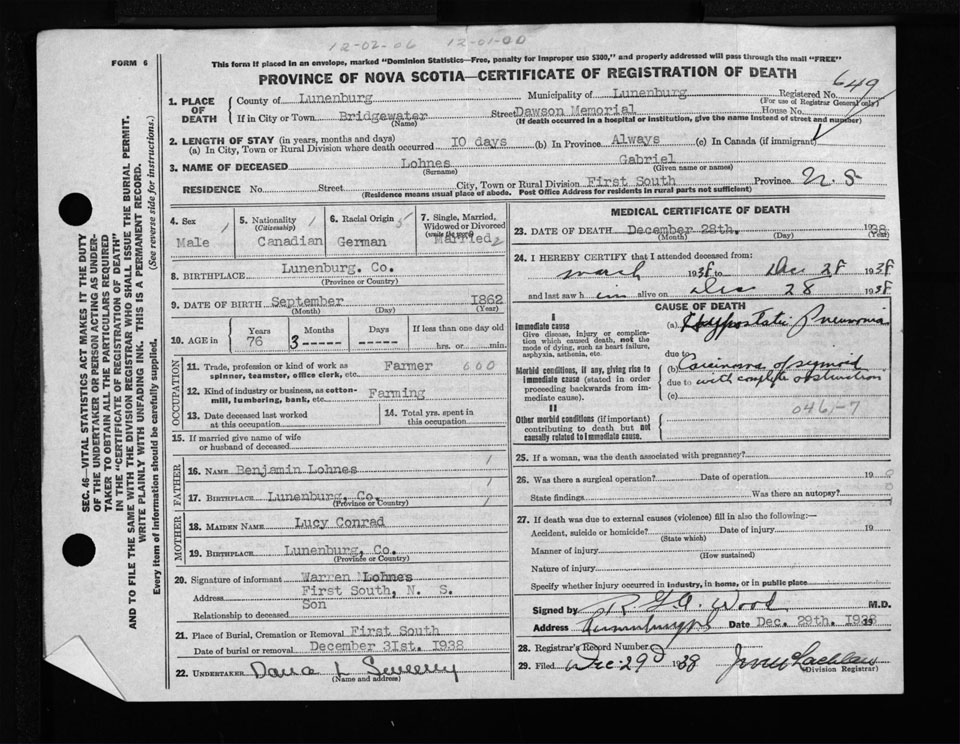 12-02-06 12-01-00
FORM 6
This form if placed in an envelope, marked "Dominion Statistics—Free, penalty for improper use $300," and properly addressed will pass through the mail "FREE"
PROVINCE OF NOVA SCOTIA—CERTIFICATE OF REGISTRATION OF DEATH
649
1. PLACE OF DEATH
County of Lunenburg Municipality of Lunenburg Registered No.
(For use of Registrar General only)
If in City or Town Bridgewater Street Dawson Memorial House No.
(Name) (If death occurred in a hospital or institution, give the name instead of street and number)
2. LENGTH OF STAY (in years, months and days)
(a) In City, Town or Rural Division where death occurred 10 days (b) In Province Always (c) In Canada (if immigrant)
3. NAME OF DECEASED Lohnes Gabriel
(Surname) (Given name or names)
RESIDENCE No. Street City, Town or Rural Division First South Province N. S
(Residence means usual place of abode. Post Office Address for Residences in rural parts not sufficient)
4. Sex Male 1
5. Nationality (Citizenship) Canadian 1
6. Racial Origin German 5
7. Single, Married, Widowed or Divorced (write the word) Married 2
8. BIRTHPLACE Lunenburg. Co.
(Province or Country)
9. DATE OF BIRTH September 1862
(Month) (Day) (Year)
10. AGE in Years Months Days If less than one day old
76 3 ----- ----- hrs. or min.
OCCUPATION
11. Trade, profession or kind of work as spinner, teamster, office clerk, etc. Farmer 600
12. Kind of industry or business, as cotton-mill, lumbering, bank, etc. Farming
13. Date deceased last worked at this occupation
14. Total yrs. spent in this occupation
15. If married give name of wife or husband of deceased
FATHER
16. NAME Benjamin Lohnes 1
17. BIRTHPLACE Lunenburg, Co. 1
(Province or Country)
MOTHER
18. MAIDEN NAME Lucy Conrad
19. BIRTHPLACE Lunenburg, Co.
(Province or Country)
20. Signature of informant Warren Lohnes
Address First South, N. S.
Relationship to deceased Son
21. Place of Burial, Cremation or Removal First South
Date of burial or removal December 31st. 1938
22. UNDERTAKER Dana L Sweeny
(Name and address)
MEDICAL CERTIFICATE OF DEATH
23. DATE OF DEATH December 28th. 1938
(Month) (Day) (Year)
24. I HEREBY CERTIFY that I attended deceased from:
March 1938 to Dec 28 1938
and last saw him alive on Dec 28 1938
CAUSE OF DEATH
I
Immediate cause
Give disease, injury or complication which caused death, not the mode of dying, such as heart failure, asphyxia, asthenia, etc.
(a) Hypostatic Pneumonia
due to
Morbid conditions, if any, giving rise to immediate cause (stated in order proceeding backwards from immediate cause).
(b) Carcinoma of sigmoid
due to with complete obstruction
(c)
II
Other morbid conditions (if important) contributing to death but not causally related to immediate cause.
046-7
25. If a woman, was the death associated with pregnancy?
26. Was there a surgical operation? Date of operation 19
State findings Was there an autopsy?
27. If death was due to external causes (violence) fill in also the following:—
Accident, suicide or homicide? Date of injury 19
(State which)
Manner of injury
(How sustained)
Nature of injury
Specify whether injury occurred in industry, in home, or in public place
Signed by R G A Wood M.D.
Address Lunenburg Date Dec. 29th. 1938
28. Registrar's Record Number
29. Filed Dec 29 38
(Division Registrar)
SEC. 46—VITAL STATISTICS ACT MAKES IT THE DUTY
OF THE UNDERTAKER OR PERSON ACTING AS UNDER-
TAKER TO OBTAIN ALL THE PARTICULARS REQUIRED
IN THE "CERTIFICATE OF REGISTRATION OF DEATH"
AND TO FILE THE SAME WITH THE DIVISION REGISTRAR WHO SHALL ISSUE THE BURIAL PERMIT.
WRITE PLAINLY WITH UNFADING INK. THIS IS A PERMANENT RECORD.
Every item of information should be carefully supplied. (See reverse side for instructions.)